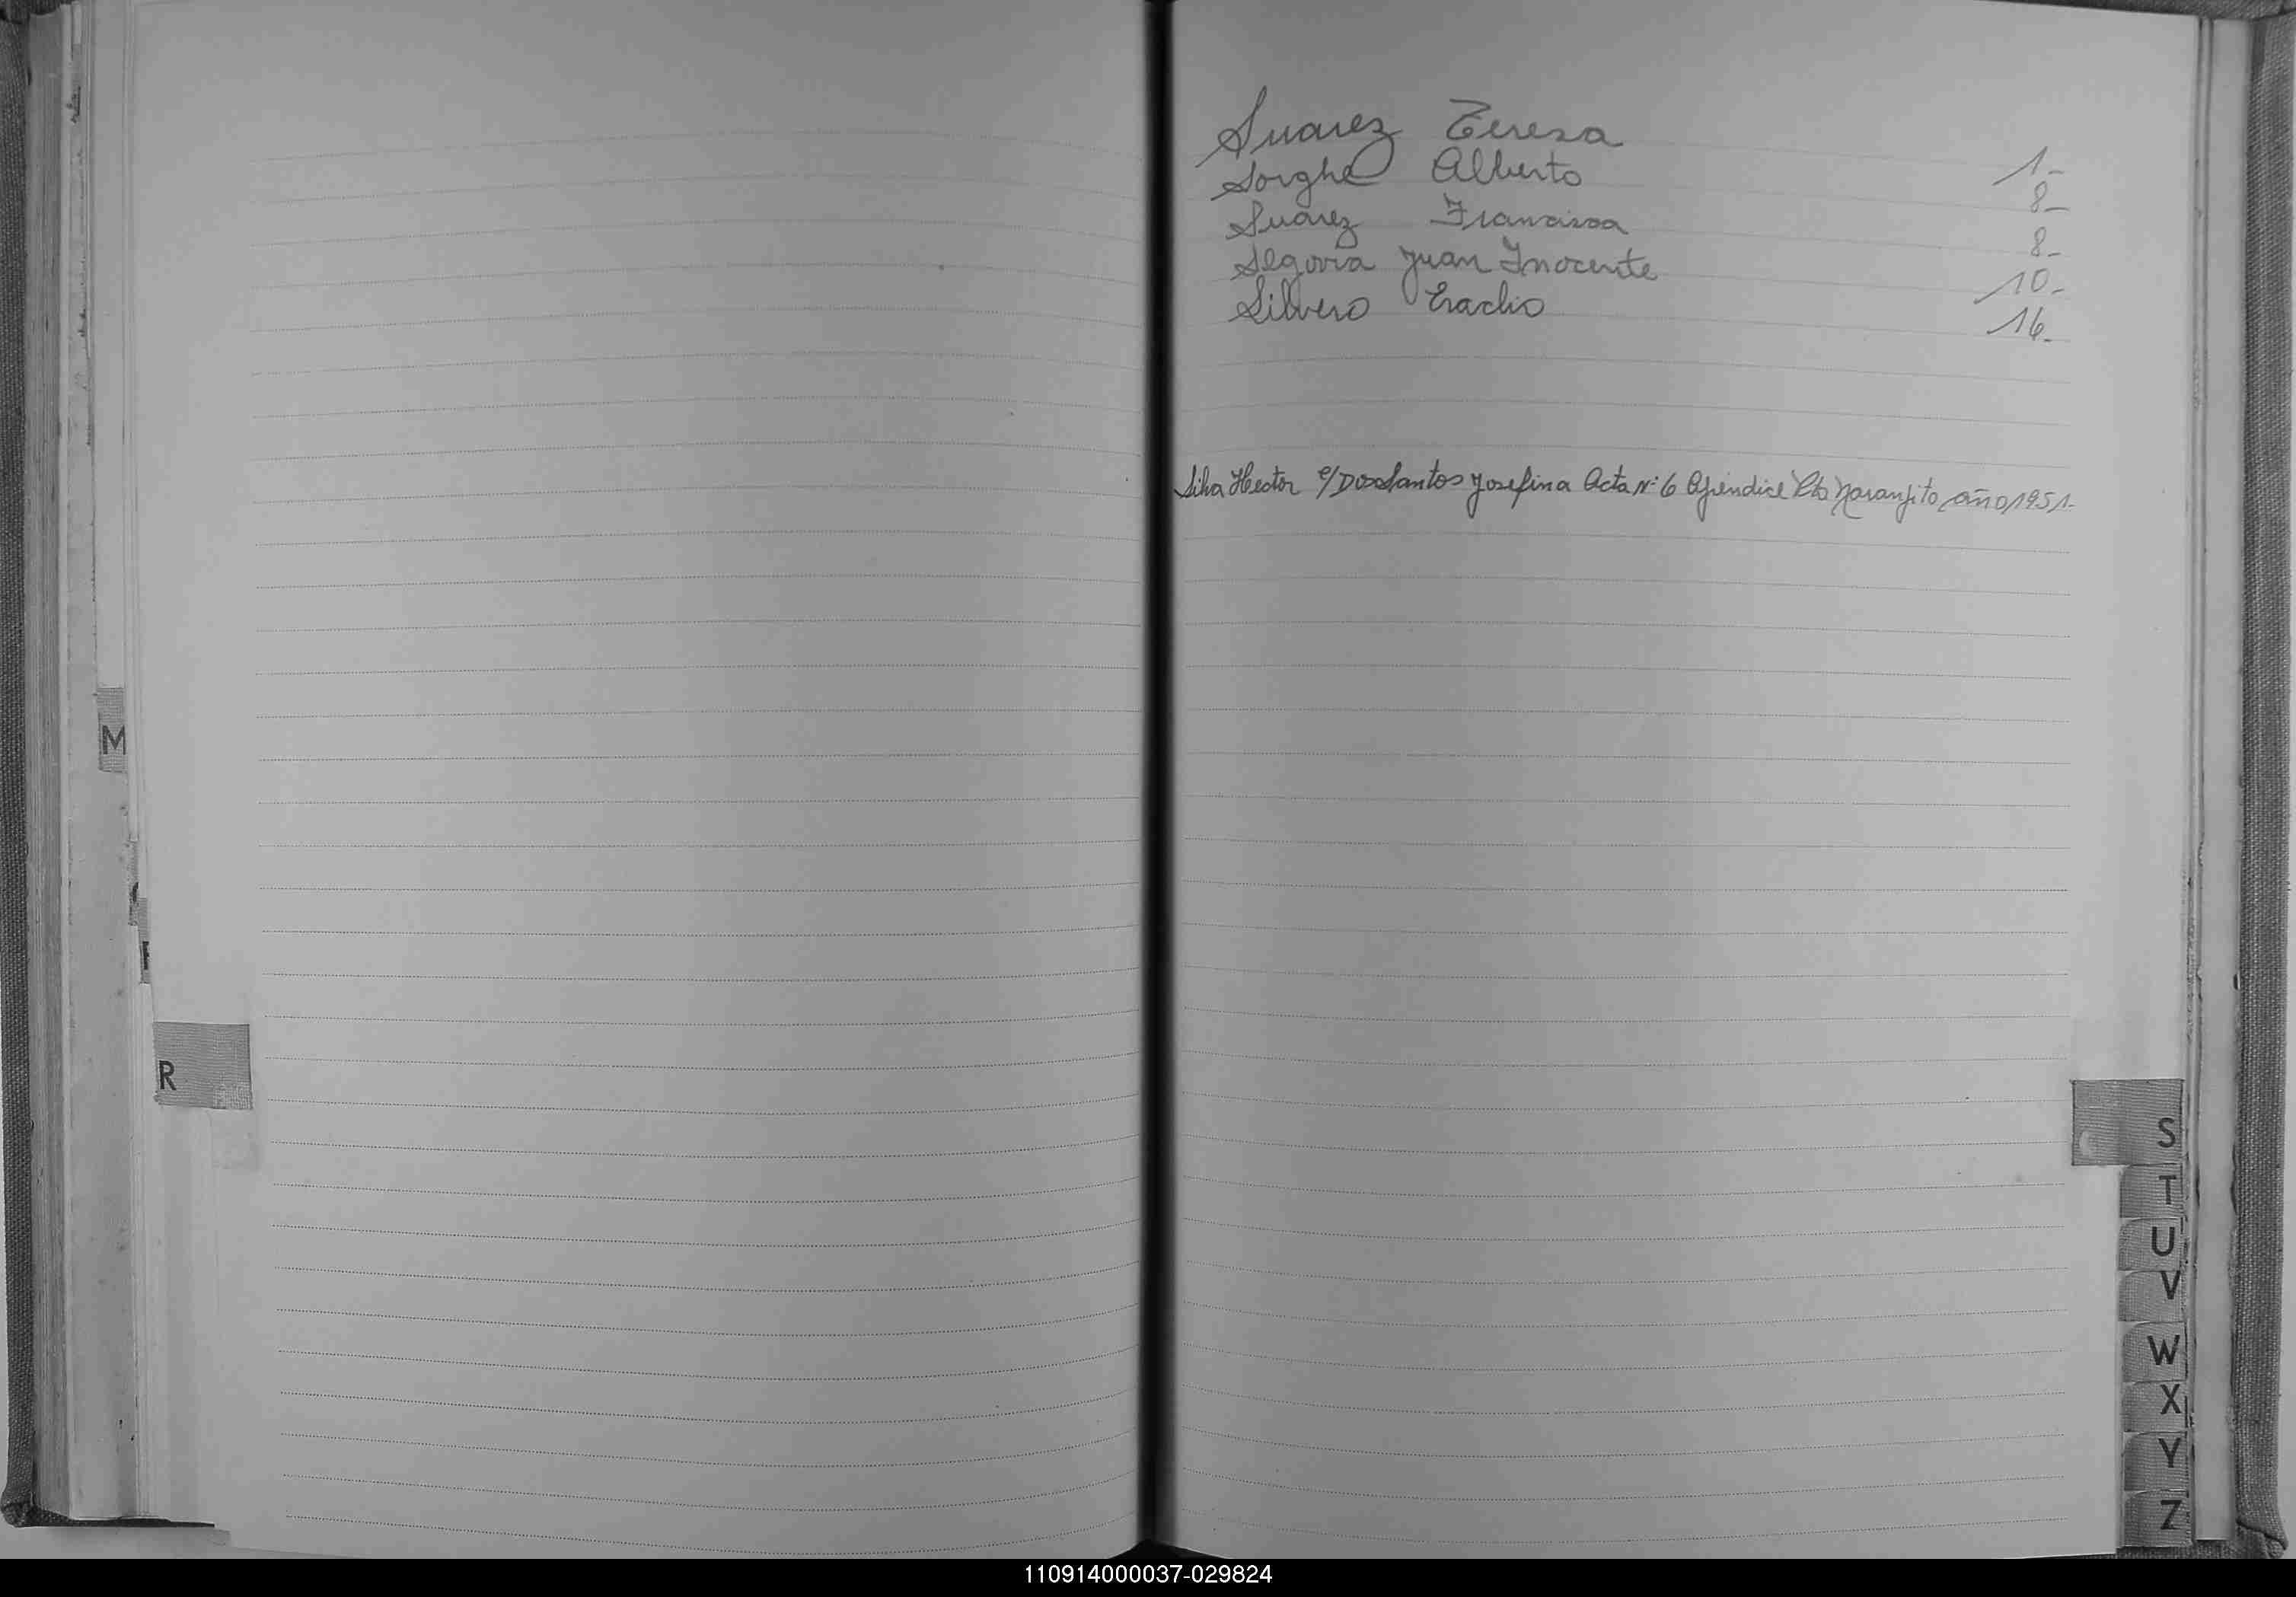 Suarez Teresa 1-
Sorghe Alberto 8-
Suarez Francisca 8-
Segovia Juan Inocente 10-
Silvero Eraclio 16-
Silva Hector c/ Dos Santos Josefina Acta Nº 6 Apendice Pto Naranjito año 1951-
M
R
S
T
U
V
W
X
Y
Z
110914000037-029824